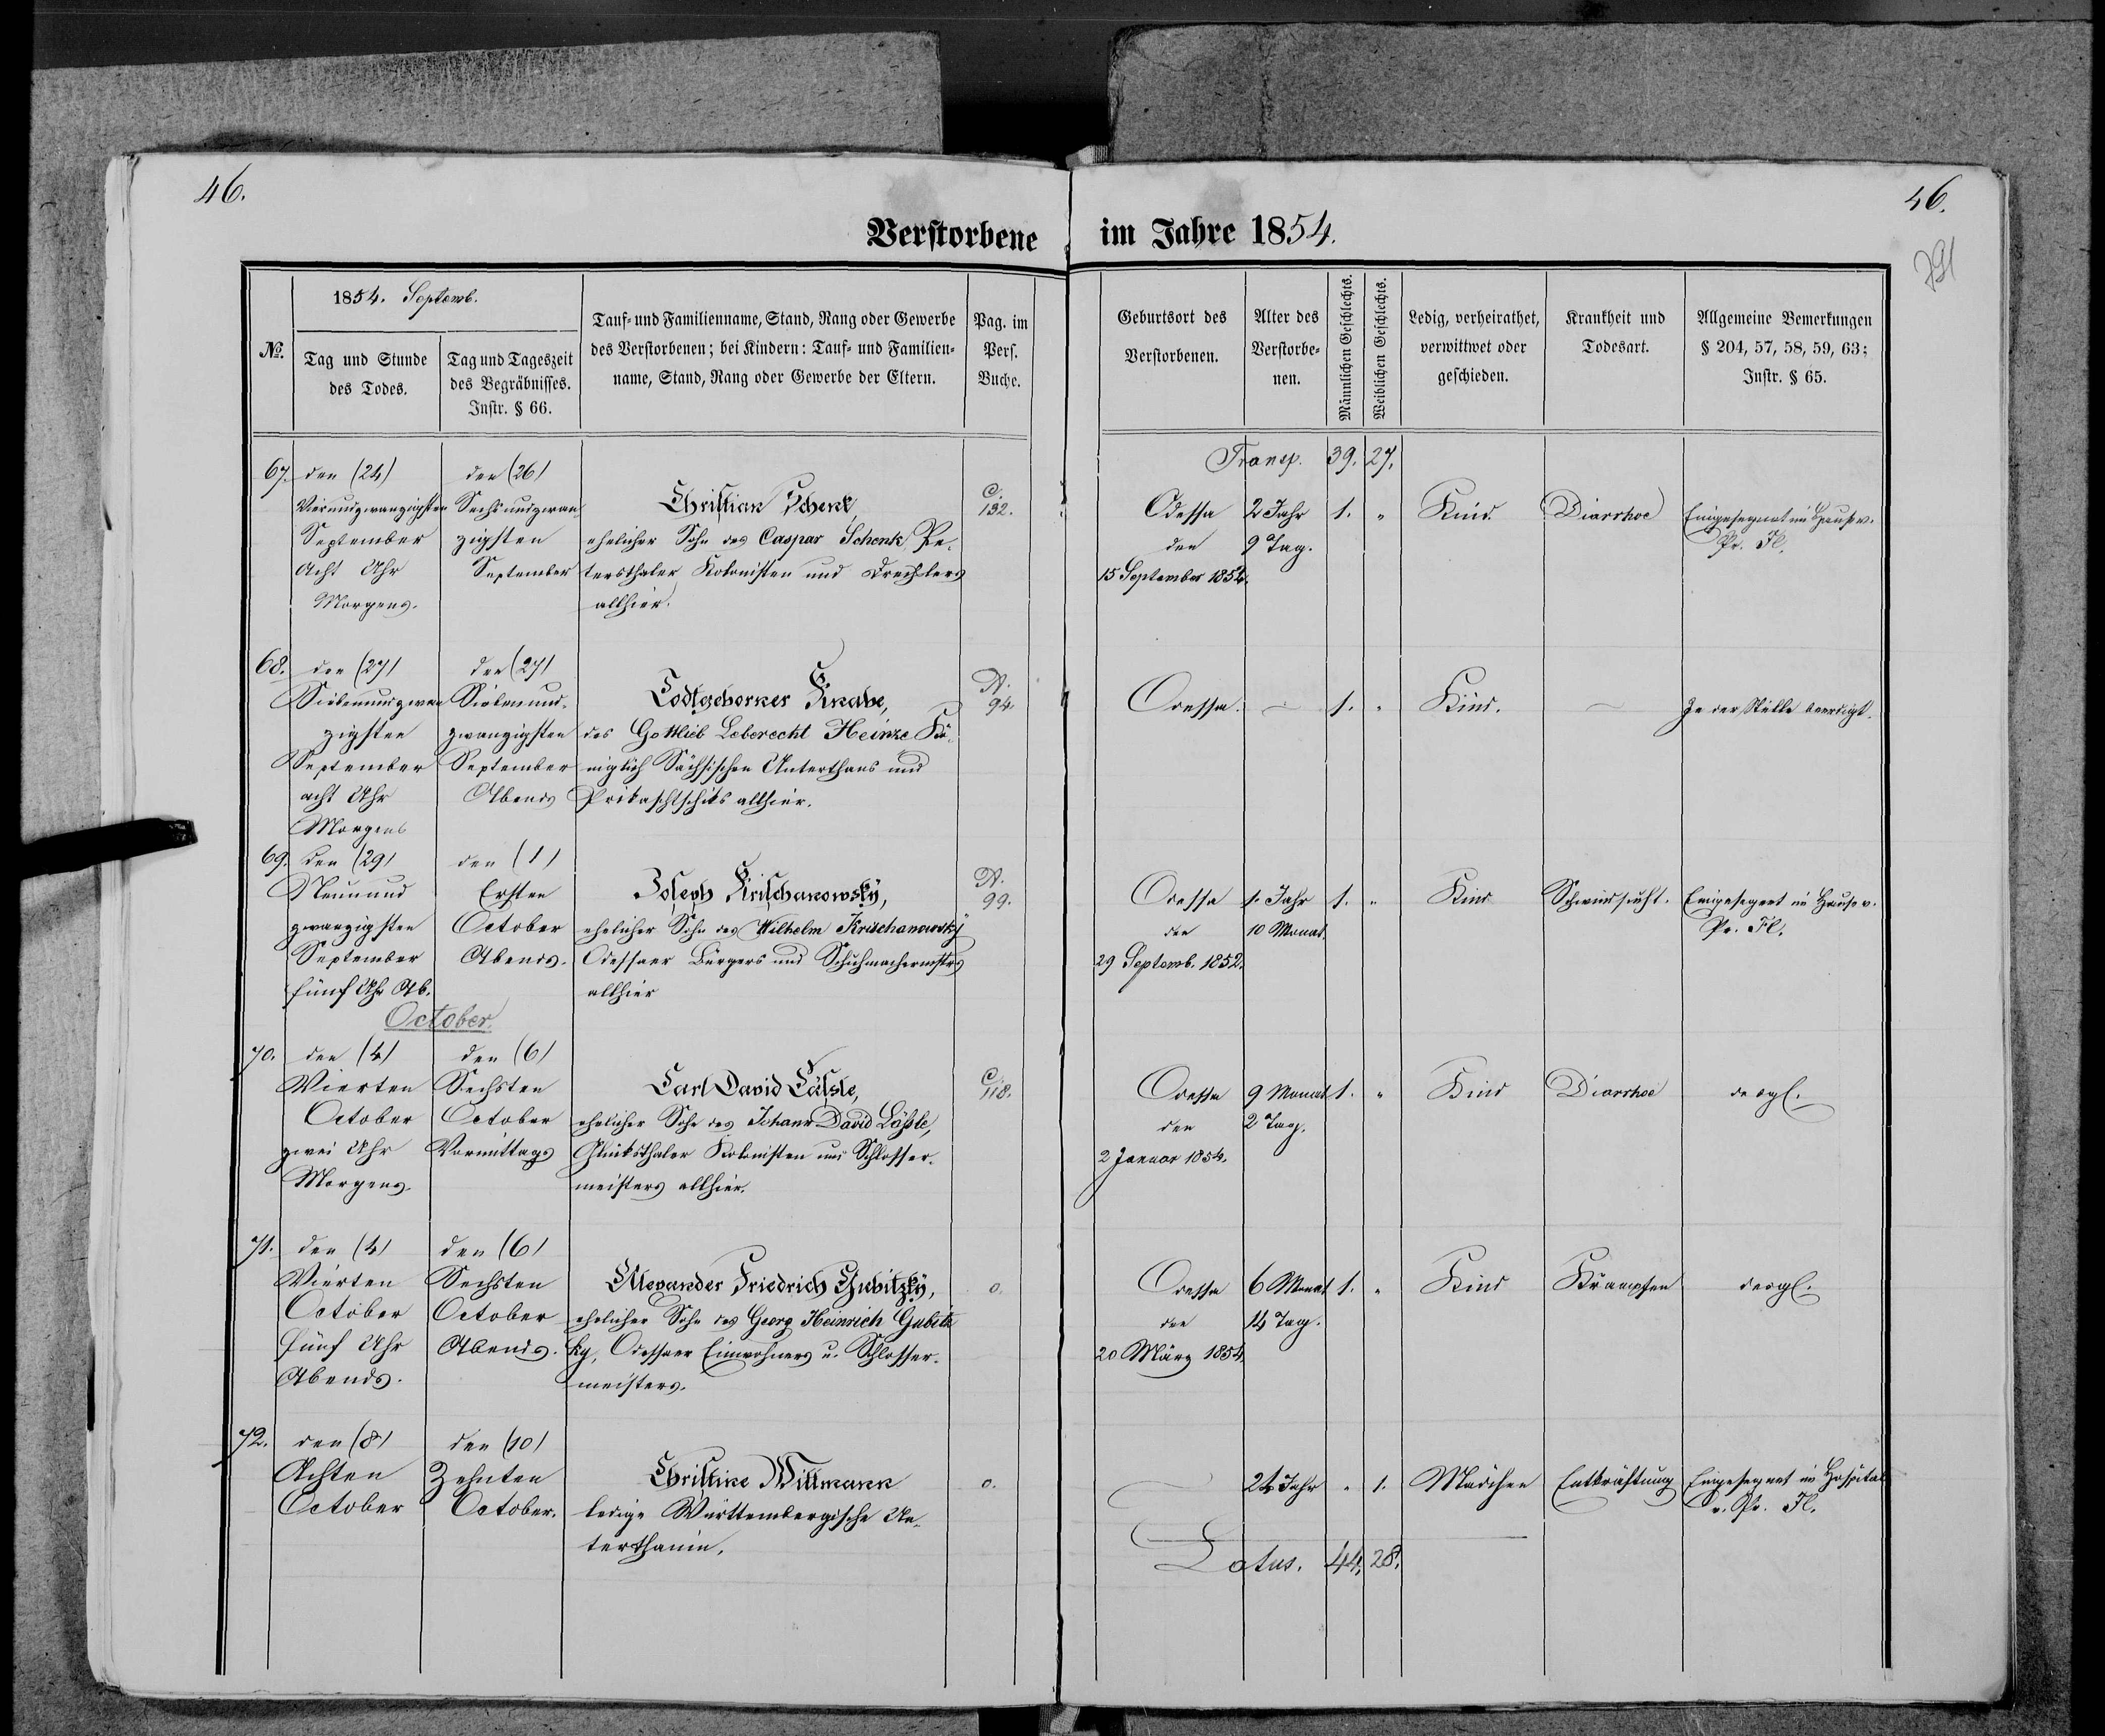 46.
46.
791
Verstorbene im Jahre 1854.
1854. Septemb.
№.
Tag und Stunde
des Todes.
Tag und Tageszeit
des Begräbnisses.
Instr. § 66.
Tauf- und Familienname, Stand, Rang oder Gewerbe
des Verstorbenen; bei Kindern: Tauf- und Familien-
name, Stand, Rang oder Gewerbe der Eltern.
Pag. im
Pers.
Buche.
Geburtsort des
Verstorbenen.
Alter des
Verstorbe-
nen.
Männlichen Geschlechts.
Weiblichen Geschlechts.
Ledig, verheirathet,
verwittwet oder
geschieden.
Krankheit und
Todesart.
Allgemeine Bemerkungen
§ 204, 57, 58, 59, 63;
Instr. § 65.
Transp. 39. 27.
67.
den (24)
Vierundzwanzigsten
September
Acht Uhr
Morgens.
den (26)
Sechsundzwan
zigsten
September
Christian Schenk,
ehelicher Sohn des Caspar Schenk, Pe-
tersthaler Kolonisten und Drechslers
allhier.
C.
132.
Odessa
den
15 September 1854.
2 Jahr
9 Tag.
1. "
Kind
Diarrhoe
Eingesegnet im Hause v.
Pr. Fl.
68.
den (27)
Siebenundzwan
zigsten
September
acht Uhr
Morgens
den (27)
Siebenund-
zwanzigsten
September
Abends
Todtgeborner Knabe,
des Gottlieb Leberecht Heinze Kö-
niglich Sächsischen Unterthans und
Prikaschtschiks allhier.
A.
94.
Odessa. — 1. "
Kind. —
In der Stille beerdigt.
69.
den (29)
Neunund
zwanzigsten
September
fünf Uhr Ab.
den (1)
Ersten
October
Abends.
Joseph Krischanowsky,
ehelicher Sohn des Wilhelm Krischanowsky
Odessaer Bürgers und Schuhmachermstrs
allhier
A.
99.
Odessa
den
29 Septemb. 1852.
1. Jahr
10 Monat.
1. "
Kind
Schwindsucht.
Eingesegnet im Hause v.
Pr. Fl.
October.
70.
den (4)
Vierten
October
zwei Uhr
Morgens.
den (6)
Sechsten
October
Vormittags
Carl David Läßle,
ehelicher Sohn des Johann David Läßle,
Glücksthaler Kolonisten und Schlosser-
meisters allhier.
C.
118.
Odessa
den
2 Januar 1854.
9 Monat
2 Tag.
1. "
Kind
Diarrhoe
desgl.
71.
den (4)
Vierten
October
fünf Uhr
Abends.
den (6)
Sechsten
October
Abends.
Alexander Friedrich Gubitzky,
ehelicher Sohn des Georg Heinrich Gubitz
ky, Odessaer Einwohners u. Schlosser-
meisters.
o.
Odessa
den
20 März 1854.
6 Monat
14 Tag.
1. "
Kind
Krämpfen
desgl.
72.
den (8)
Achten
October
den (10)
Zehnten
October.
Christine Willmann
ledige Württembergische Un-
terthanin.
o.
—
24 Jahr " 1.
Mädchen
Entkräftung
Eingesegnet im Hospital
v. Pr. Fl.
Latus. 44. 28.